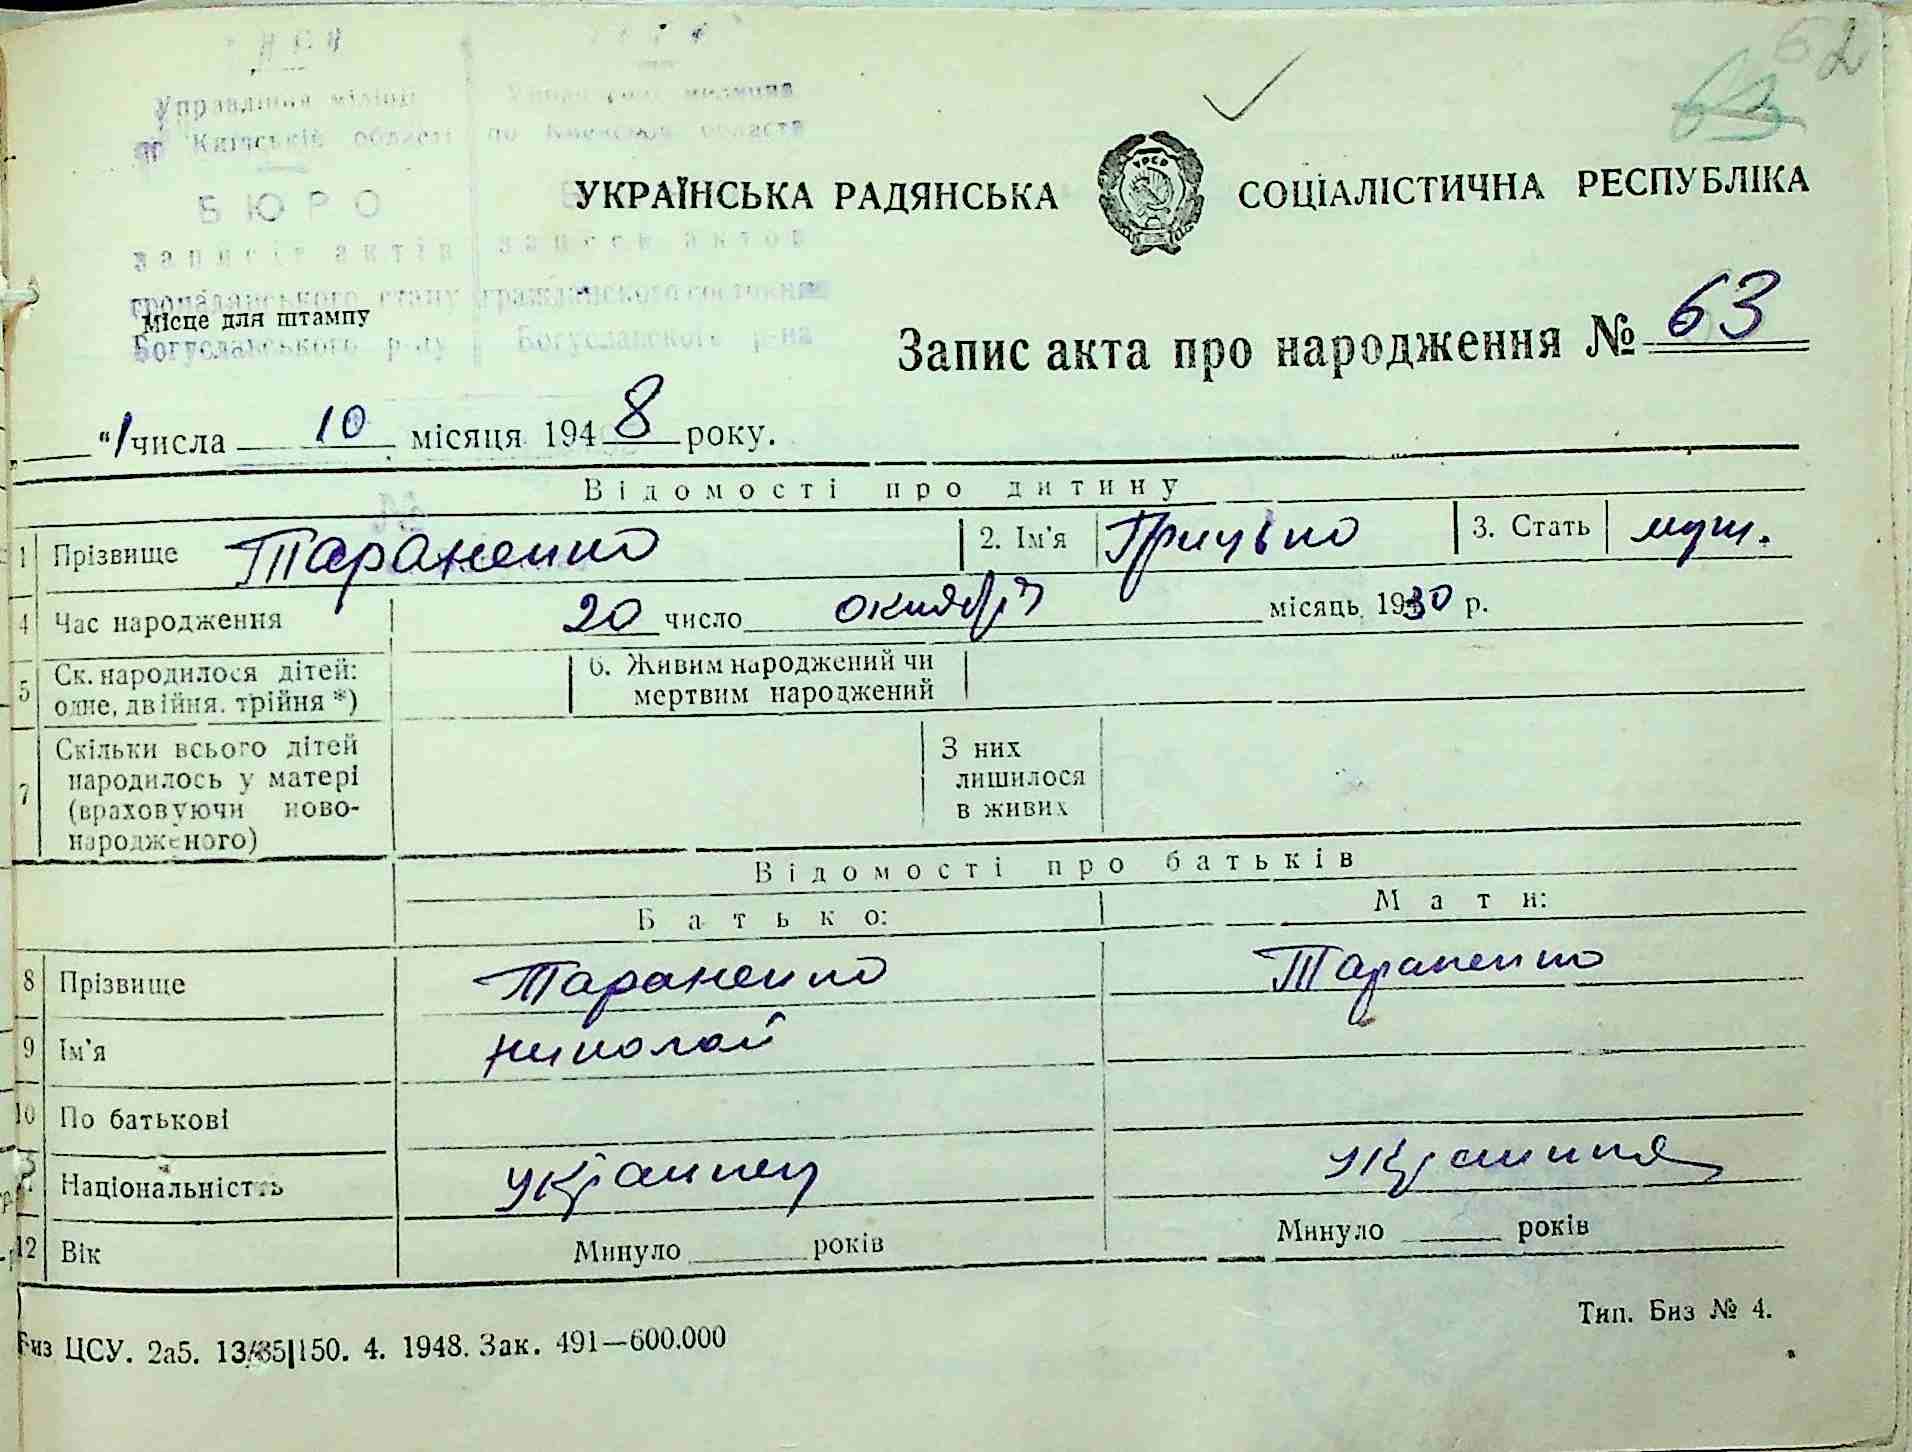 62
63
Управління міліції Управление милиции
по Київській області по Киевской области
БЮРО
записів актів записей актов
громадянського стану гражданского состояния
Місце для штампу
Богуславського р-ну Богуславского р-на
УКРАЇНСЬКА РАДЯНСЬКА СОЦІАЛІСТИЧНА РЕСПУБЛІКА
УРСР
Запис акта про народження № 63
"1 числа 10 місяця 1948 року.
Відомості про дитину
1 Прізвище Тараненко 2. Ім'я Грицько 3. Стать муж.
4 Час народження 20 число октября місяць 1930 р.
5 Ск. народилося дітей: одне, двійня, трійня *) 6. Живим народжений чи мертвим народжений
7 Скільки всього дітей народилось у матері (враховуючи ново-народженого) З них лишилося в живих
Відомості про батьків
Батько: Мати:
8 Прізвище Тараненко Тараненко
9 Ім'я Николай
10 По батькові
Національність украинец украинка
12 Вік Минуло року Минуло років
Тип. Биз № 4.
Биз ЦСУ. 2а5. 13/35|150. 4. 1948. Зак. 491—600.000